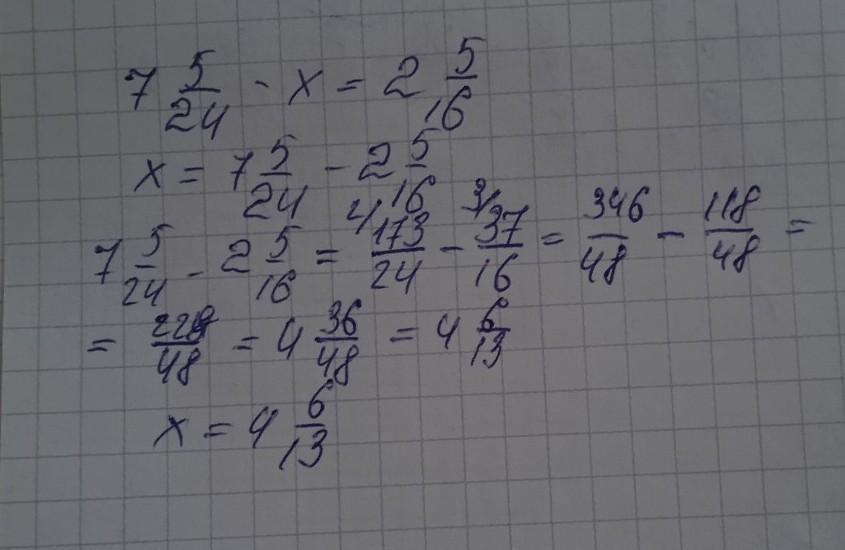 7 5/24 - x = 2 5/16
x = 7 5/24 - 2 5/16
7 5/24 - 2 5/16 = 2/ 173/24 - 3/ 37/16 = 346/48 - 118/48 =
= 228/48 = 4 36/48 = 4 6/13
x = 4 6/13